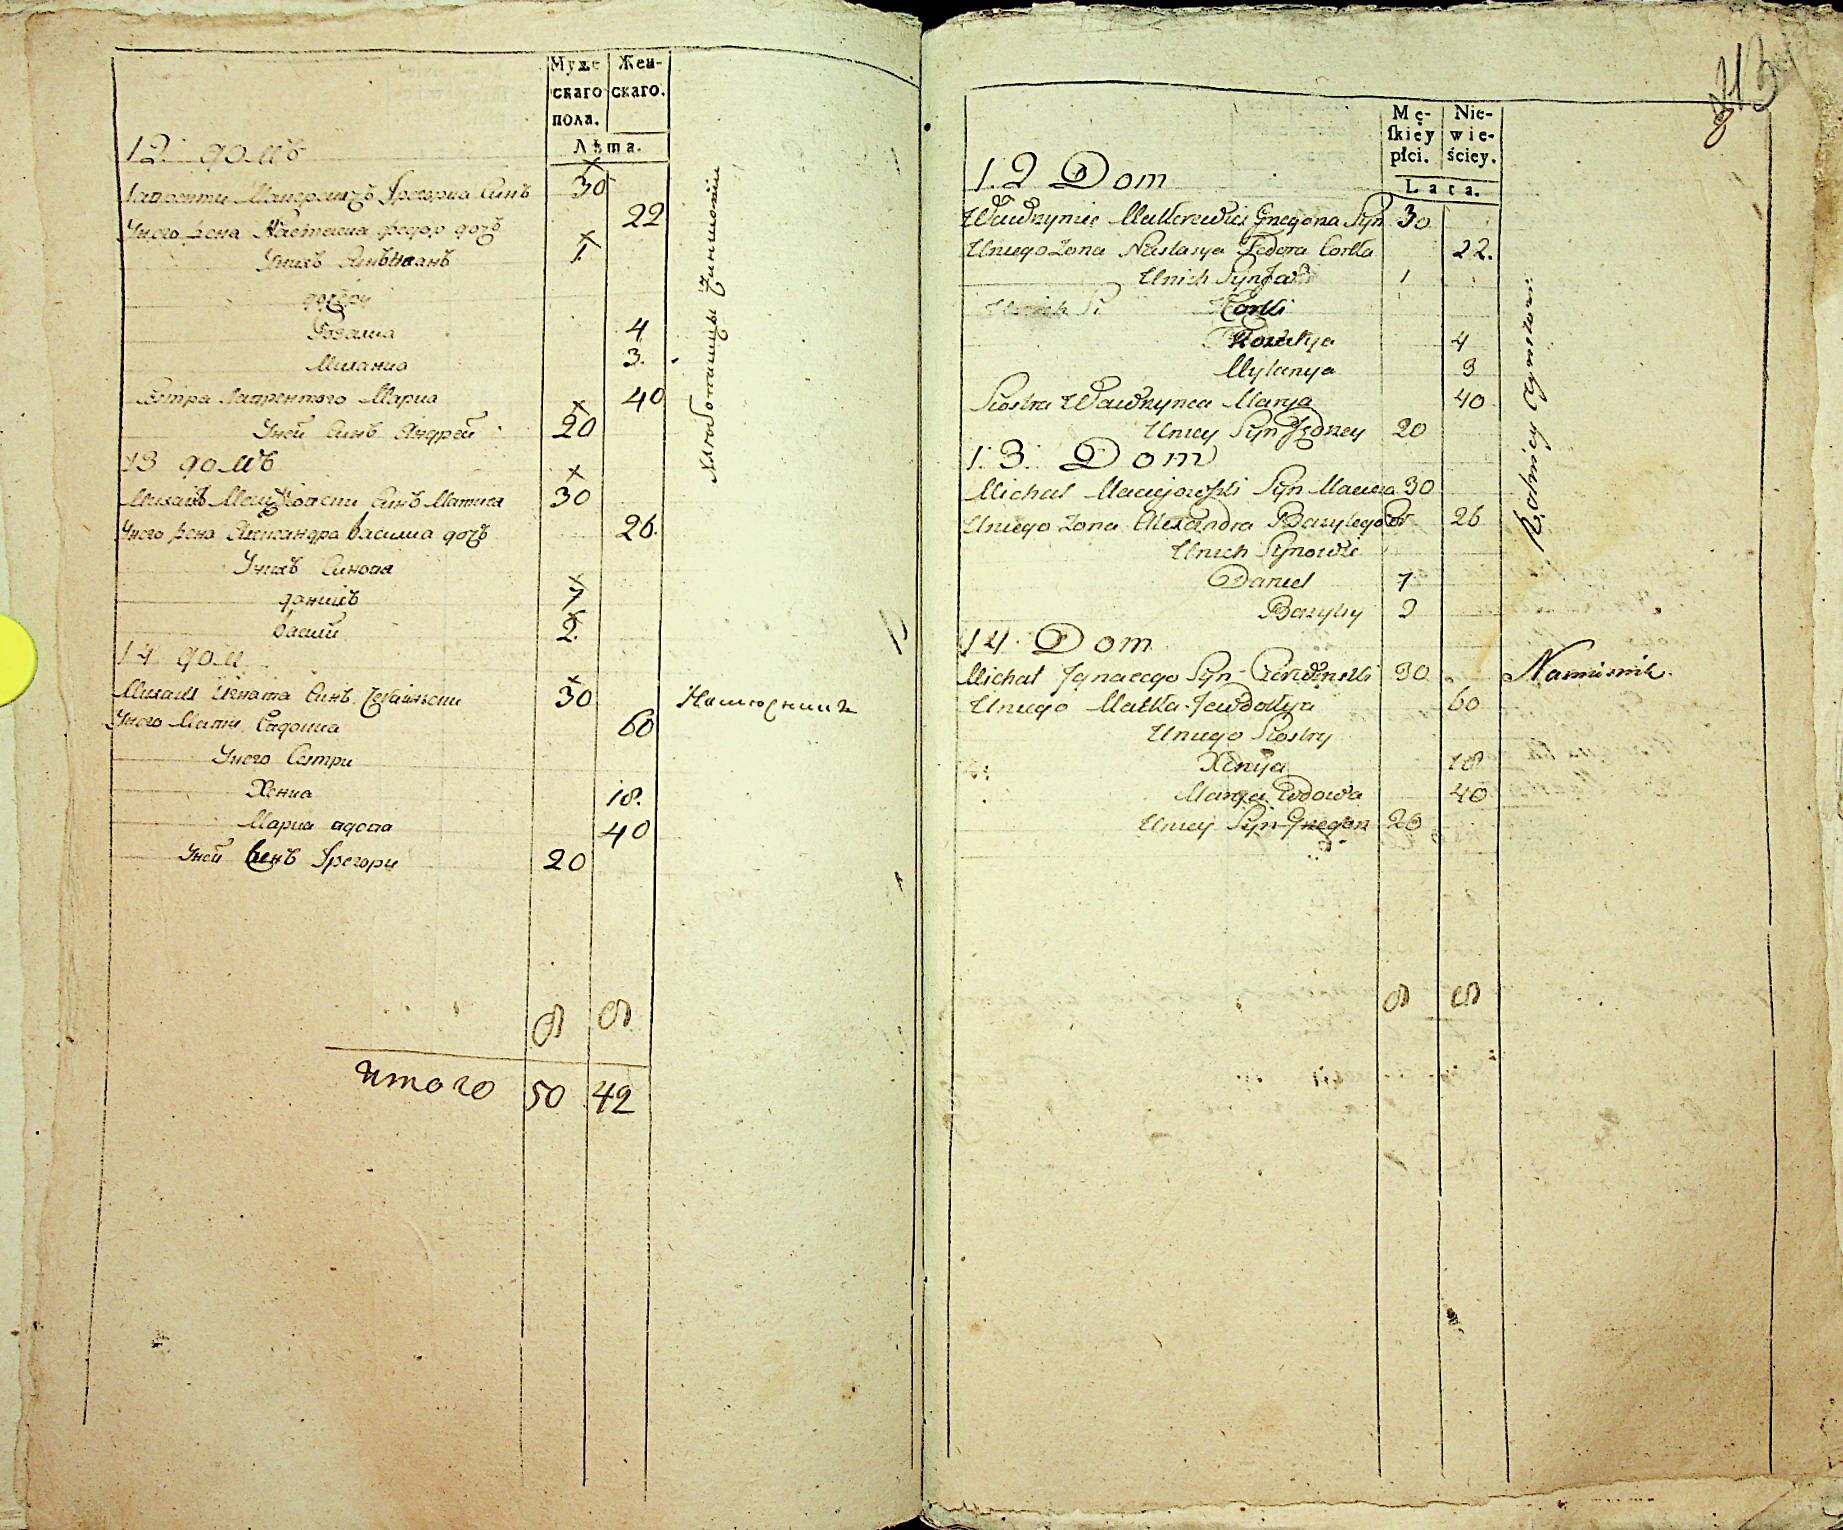 Муже
скаго
пола.
Жен-
скаго.
Лѣта.
12 домъ
Грегориа Синъ 30
Унего Жена Настасиа федор дочъ 22
Унихъ Синъ Иванъ 1.
дочери
Розалиа 4
Миланиа 3.
Сестра Мариа 40
Уней Синъ Андрей 20
13 домъ
Синъ Матиея 30
Унего Жена Александра Василиа дочъ 26.
Унихъ Синова
Данилъ 7
Васили 2.
14 дом
Михаил Игната Синъ 30
Унего Мати 60
Унего Сестри
Хениа 18.
Мариа вдова 40
Уней Синъ Грегори 20
8 8
итого 50 42
813
8
Mę-
skiéy
płci.
Nie-
wie-
ściey.
Lata.
12 Dom
Wawrzyniec Grzegorza Syn 30
Uniego Zona Nastasya Fedora Corka 22.
Unich Syn Jan 1
Corki
Rozalya 4
Mylanya 3
Siostra Wawrzynca Marya 40
Uniey Syn Jędrzey 20
13. Dom
Michał Maciejowski Syn Macieia 30
Uniego Zona Alexandra Bazylego Cor 26
Unich Synowie
Daniel 7
Bazyly 2
14 Dom
Michał Jgnacego Syn 30 Namisnik.
Uniego Matka Jewdokya 60
Uniego Siostry
Xenija 18
Marya Wdowa 40
Uniey Syn Grzegorz 20
8 8
Rolnicy Czynszowi